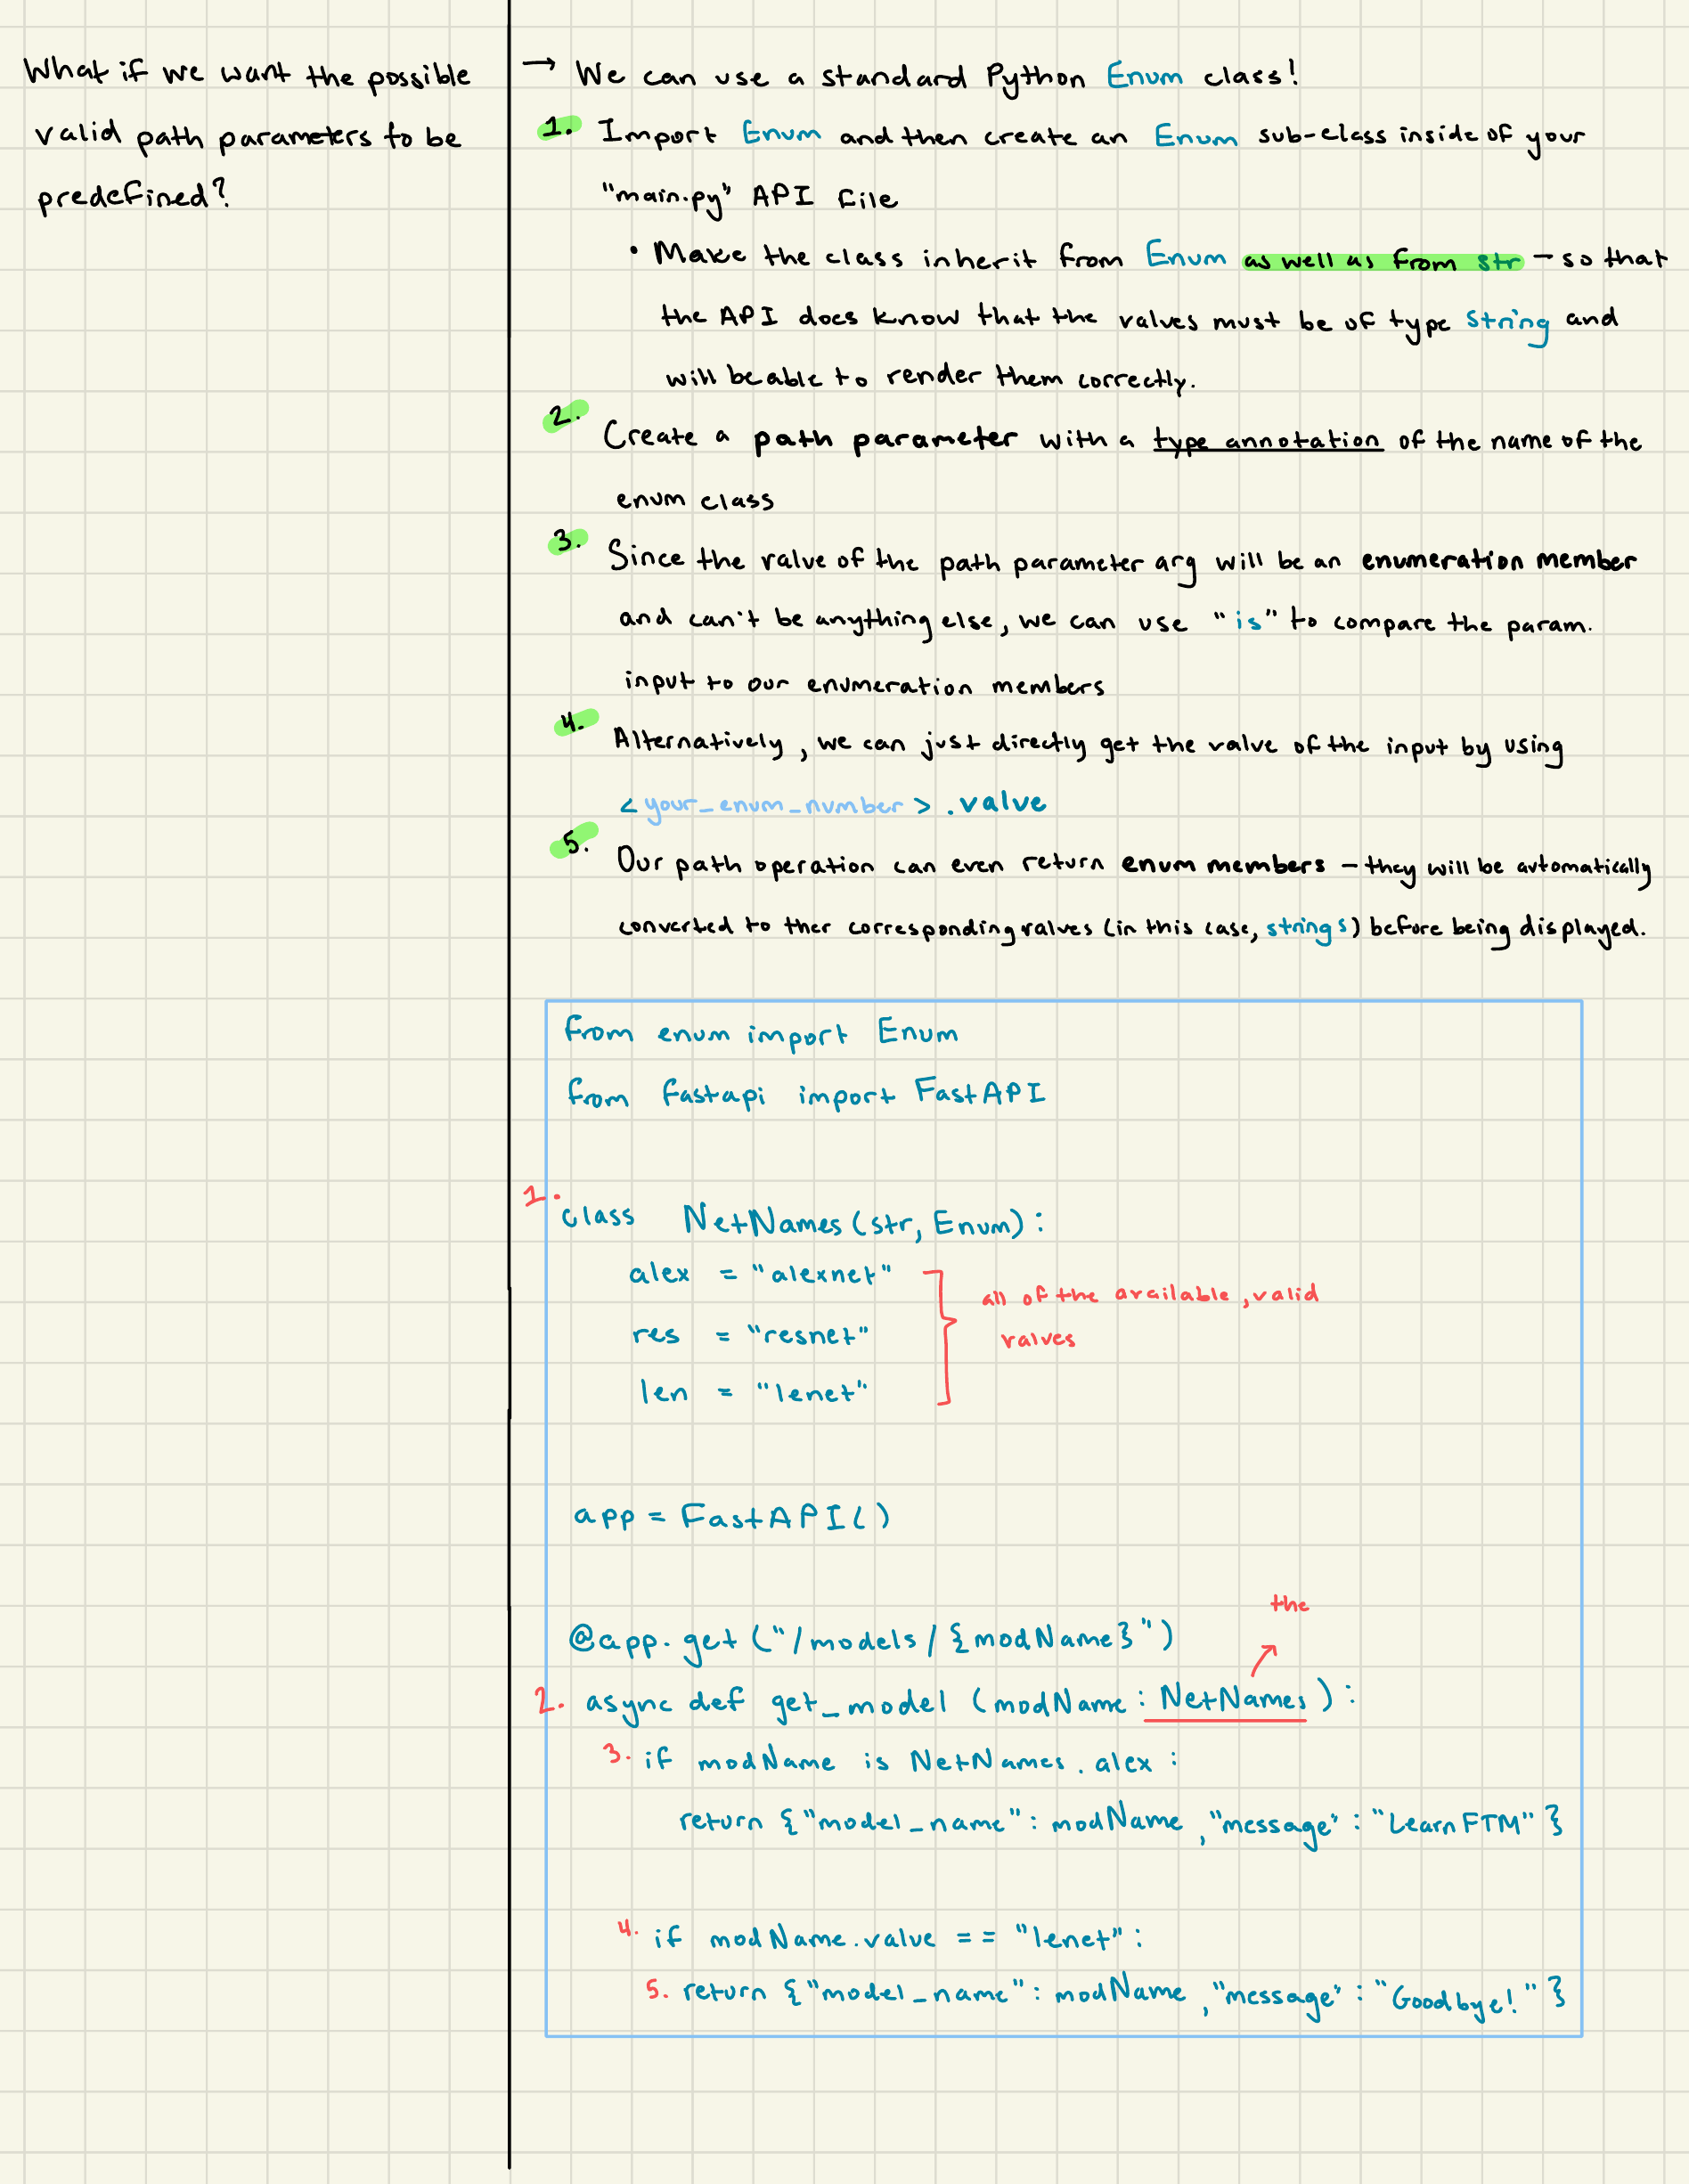 What if we want the possible
valid path parameters to be
predefined?
→ We can use a standard Python Enum class!
1. Import Enum and then create an Enum sub-class inside of your
"main.py" API file
• Make the class inherit from Enum as well as from str - so that
the API does know that the values must be of type string and
will be able to render them correctly.
2. Create a path parameter with a type annotation of the name of the
enum class
3. Since the value of the path parameter arg will be an enumeration member
and can't be anything else, we can use "is" to compare the param.
input to our enumeration members
4. Alternatively, we can just directly get the value of the input by using
<your_enum_number>.value
5. Our path operation can even return enum members - they will be automatically
converted to ther corresponding values (in this case, strings) before being displayed.
from enum import Enum
from fastapi import FastAPI
1. class NetNames(str, Enum):
alex = "alexnet"
all of the available, valid
values
res = "resnet"
len = "lenet"
app = FastAPI()
the
@app.get("/models/{modName}")
2. async def get_model (modName: NetNames):
3. if modName is NetNames.alex:
return {"model_name": modName, "message": "Learn FTM"}
4. if modName.value == "lenet":
5. return {"model_name": modName, "message": "Goodbye!"}